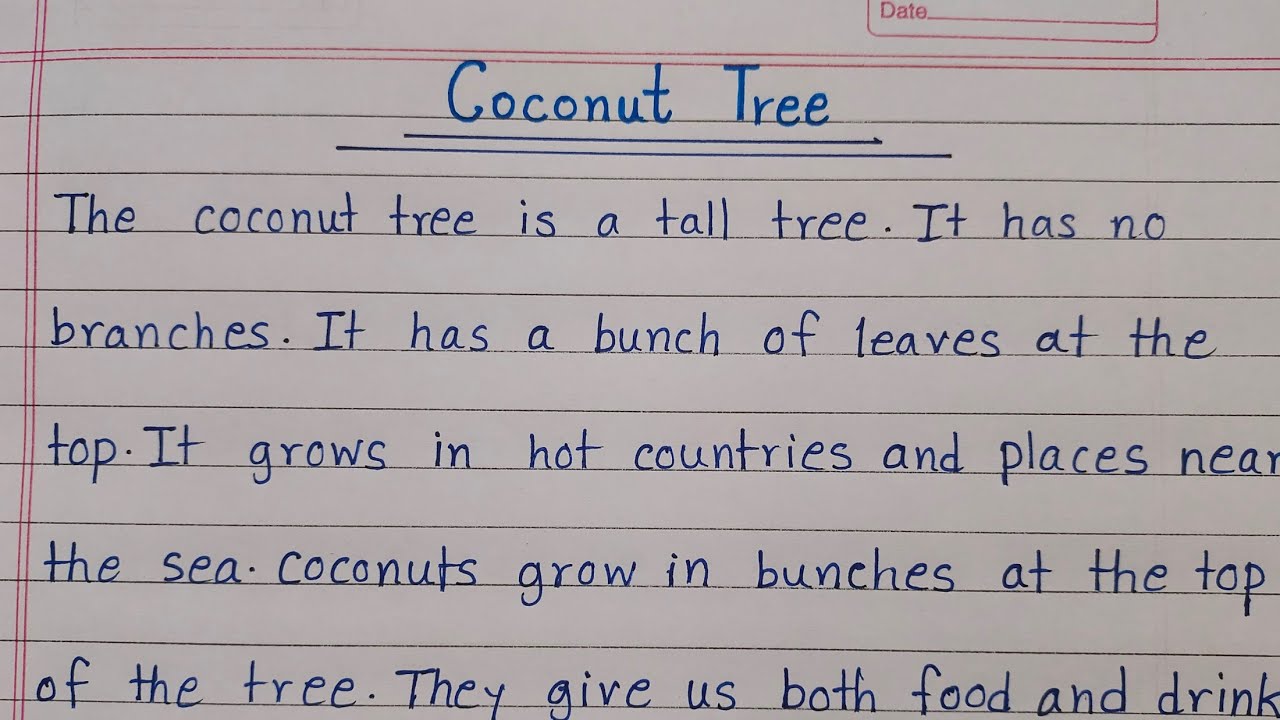 Date
Coconut Tree
The coconut tree is a tall tree. It has no
branches. It has a bunch of leaves at the
top. It grows in hot countries and places near
the sea. coconuts grow in bunches at the top
of the tree. They give us both food and drink